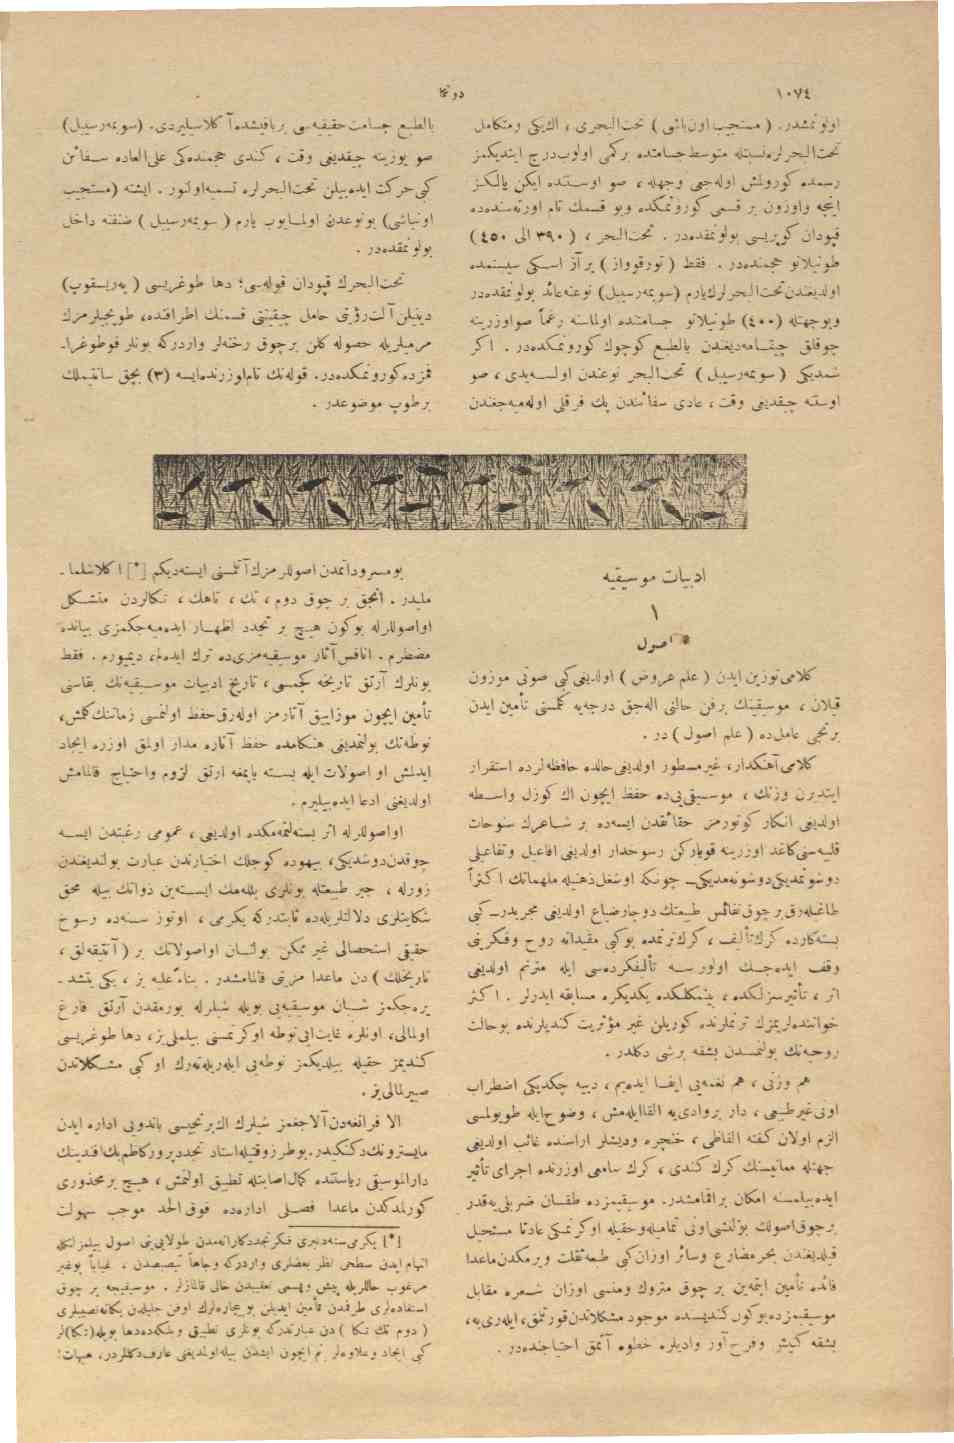 ١٠٧٤
دونما
اولونمشدر. (مستجیب اون‌باشی) تحت‌البحری، الك‌یكی ومتكامل
تحت‌البحرلره‌نسبتله متوسط جسامتده برگمی اولوب‌درج ایتدیكمز
رسمده كورولمش اوله‌جغی وجهله، صو اوستنده ایكن یالكز
اینجه واوزون بر قسمی كورونمكده وبو قسمك تام اورته‌سنده‌ده
قپودان كوپریسی بولونمقده‌در. تحت‌البحر، (٣٩٠ الی ٤٥٠)
طونیلاتو حجمنده‌در. فقط (تورقواز) برآز اسكی سیستمده
اولدیغندن تحت‌البحرلرك‌یارم (سوبمه‌رسیبل) نوعنه‌عائد بولونمقده‌در
وبوجهتله (٤٠٠) طونیلاتو جسامتنده اولماسنه رغماً صواوزرینه
چوقلق چیقامه‌دیغندن بالطبع كوچوك كورونمكده‌در. اكر
شمدیكی (سوبمه‌رسیبل) تحت‌البحر نوعندن اولسه‌یدی، صو
اوستنه چیقدیغی وقت، عادی سفائندن پك فرقلی اوله‌میه‌جغندن
بالطبع جسامت حقیقیه‌سی برباقیشده آكلاشیلیردی. (سوبمه‌رسیبل)
صو یوزینه چیقدیغی وقت، كندی حجمنده‌كی علی‌العاده سفائن
كبی حركت ایده‌بیلن تحت‌البحرلره تسمیه‌اولنور. ایشته (مستجیب
اونباشی) بونوعدن اولمایوب یارم (سوبمه‌رسیبل) صنفنه داخل
بولونمقده‌در.
تحت‌البحرك قپودان قوله‌سی؛ دها طوغریسی (پەریسقوپ)
دینیلن آلت‌رؤیتی حامل چیقینتی قسمنك اطرافنده، طوپجیلرمزك
مرمیلریله حصوله كلن برچوق رخنه‌لر واردركه بونلر فوطوغرا-
فمزده‌كورونمكده‌در. قوله‌نك تام‌اوزرنده‌ایسه (٣) بچق سانتیملك
برطوپ موضوعدر.
ادبیات موسیقیه
١
اصول
كلامی‌توزین ایدن (علم عروض) اولدیغی كبی صوتی موزون
قیلان، موسیقینك برفن حالنی اله‌جق درجه‌یه كلمسنی تأمین ایدن
برنجی عامل‌ده (علم اصول) در.
كلامی‌آهنكدار، غیرمسطور اولدیغی‌حالده حافظه‌لرده استقرار
ایتدیرن وزنك، موسیقی‌یی‌ده حفظ ایچون اك كوزل واسطه
اولدیغی انكار كوتورمز حقائقدن ایسه‌ده بر شاعرك سنوحات
قلبیه‌سنی‌كاغد اوزرینه قویاركن رسوخدار اولدیغی افاعیل وتفاعیلی
دوشونمدیكی‌دوشونه‌مدیكی - چونكه اوشغل‌ذهنیله ملهماتك اكثراً
طاغیله‌رق‌بر چوق‌نفائس طبیعتك دوچارضیاع اولدیغی مجریدر - كبی
بسته‌كارده كرك‌تألیف، كرك‌ترنمده بوكبی مقیداته روح وفكرینی
وقف ایده‌جك اولورسه تألیفكرده‌سی ایله مترنم اولدیغی
اثر، تأثیرسزلكده، بیتمكلكده یكدیكره مسابقه ایدرلر. اكثر
خواننده‌لریمزك ترنملرنده كوریلن غیر مؤثریت كندیلرنده بوحالت
روحیه‌نك بولنمسدن بشقه برشی دكلدر.
هم وزنی، هم نغمه‌یی ایفا ایده‌یم، دییه چكدیكی اضطراب
اونی‌غیرطبیعی، دار بروادی‌یه القاایله‌مش، وضوح‌ایله طویولمسی
الزم اولان كفته الفاظی، خنجره ودیشلر اراسنده غائب اولدیغی
جهتله ممانیسنك كرك كندی، كرك سامعی اوزرنده اجرای تأثیر
ایده‌بیلمسنه امكان براقمامشدر. موسیقیمزده طقسان ضربلی‌یه‌قدر
برچوق‌اصولك بولنشی‌اونی تمامیله‌وحقیله اوكرنمكی عادتا مستحیل
قیلدیغندن بحرمضارع وسائر اوزان‌كبی طبعه‌ثقلت ویرمكدن‌ماعدا
فائده تأمین ایتمه‌ین بر چوق متروك ومنسی اوزان شعره مقابل
موسیقیمزده‌بوكون كندیسنده موجود مشكلاتدن‌قورتلمق، ایله‌ری‌یه،
بشقه كنیش وفرح‌آور وادیلره خطوه آتمق احتیاجنده‌در.
بومسروداتمدن اصوللرمزك آتلمسنی ایسته‌دیكم [*] اكلاشلما-
ملیدر. انجق بر چوق دوم، تك، تاهك، تكالردن متشكل
اواصوللرله بوكون هیچ بر تجدد اظهار ایده‌میه‌جكمزی بیانده
مضطرم. انافس‌آثار موسیقیه‌مزی‌ده ترك ایده‌لم، دیمیورم. فقط
بونلرك آرتق تاریخه كچمسی، تاریخ ادبیات موسیقیه‌نك بقاسنی
تأمین ایچون موزاییق آثارمز اوله‌رق‌حفظ اولنمسی زماننك‌كلمش،
نوطه‌نك بولنمدیغی هنكامده حفظ آثاره مدار اولمق اوزره ایجاد
ایدلمش او اصولات ایله بسته یاپمغه ارتق لزوم واحتیاج قالمامش
اولدیغنی ادعا ایده‌بیلیرم.
اواصوللرله اثر بسته‌لنمه‌مكده اولدیغی، عمومی رغبتدن ایسه
چوقدن‌دوشدیكی، بیهوده كوجلك اختیارندن عبارت بولندیغندن
زورله، جبر طبیعتله بونلری بللمك ایسته‌ین ذواتك بیله محق
شكایتلری دلالتلریله‌ده ثابتدركه یكرمی، اوتوز سنه‌ده رسوخ
حقیقی استحصالی غیر ممكن بولنان اواصولاتك بر (آنتیقه‌لق،
تاریخلك) دن ماعدا مزیتی قالمامشدر. بناءً علیه بز، یكی یتشد-
یره‌جكمز شبان موسیقیه‌یی بویله شیلرله یورمقدن آرتق فارغ
اولمالی، اونلره غایت‌ایی‌نوطه اوكرتمسنی بیلملی‌یز، دها طوغریسی
كندیمز حقیله بیلدیكمز نوطه‌یی ایله‌ریله‌ته‌رك او كبی مشكلاتدن
صیریلمالی‌یز.
الا فرانغه‌دن‌آلاجغمز شیلرك الك‌برنجیسی باندویی اداره ایدن
مایسترونك‌دكنكیدر. بوطرزوقتیله‌استاد تجددپروركاظم‌بك‌افندینك
دارالموسیقی ریاستنده كمال‌اصابتله تطبیق اولنمش، هیچ برمحذوری
كورلمدكدن ماعدا فصلی اداره‌ده فوق‌الحد موجب سهولت
[*] یكرمی‌سنه‌دنبری فكرتجددكارانه‌مدن طولایی‌بنی اصول بیلمزلكله
اتهام ایدن سطحی نظر بعضلری واردركه وجاهاً تبصبصدن، غیاباً بوغیر
مرغوب حاللریله پیش وپسمی تعقیبدن خالی قالمازلر. موسیقیجه بر چوق
استفاده‌لری طرفمدن تأمین ایدیلن بوبیچاره‌لرك اوفن جلیلدن یكانه‌نصیبلری
(دوم تك تكا) دن عبارتدركه بونلری تطبیق وبلكه‌ده‌دها بویله (تكا) لر
كبی ایجاد وعلاوه‌لر بم ایچون ایشدن بیله‌اولمدیغنی عارف‌دكللردر، هیهات!